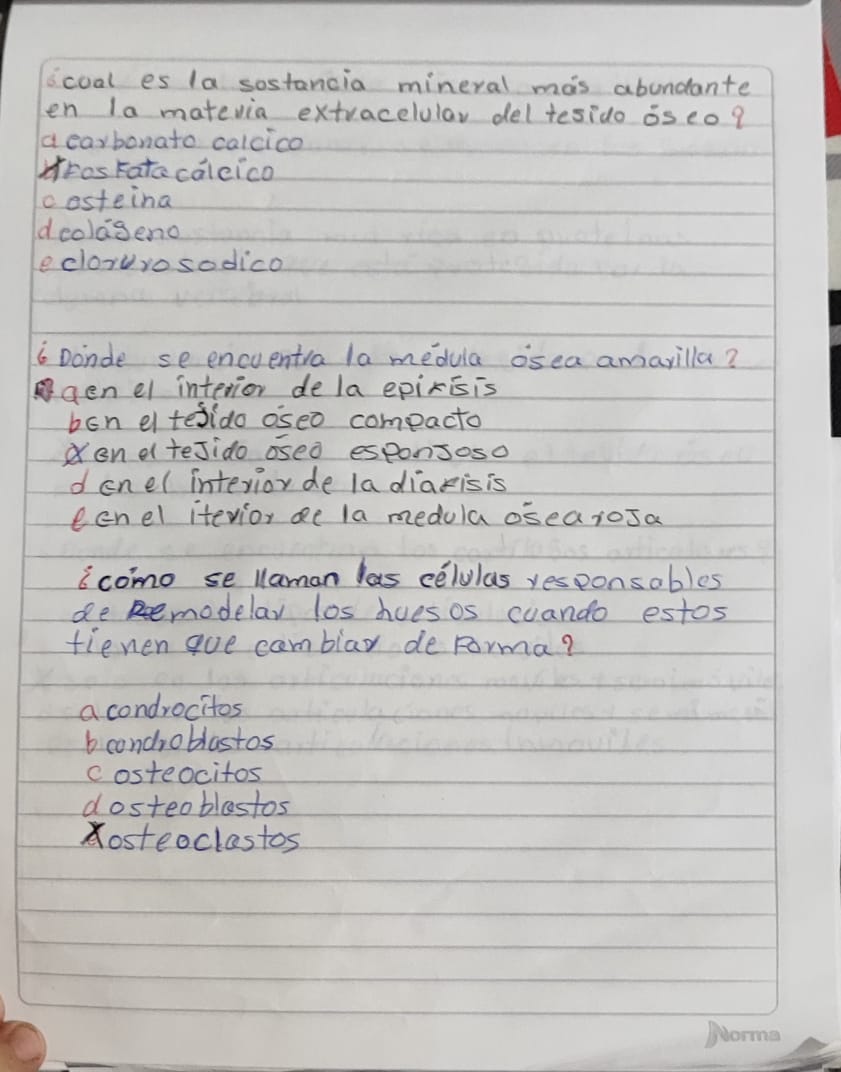 ¿coal es la sostancia mineral más abundante
en la materia extracelular del tesido óseo?
a carbonato calcico
x Fosfata cálcico
c osteina
d colágeno
e cloruro sodico
¿Dónde se encuentra la médula ósea amarilla?
a en el interior de la epifisis
b en el tejido óseo compacto
x en el tejido óseo esponjoso
d en el interior de la diafisis
e en el iterior de la medula ósea roja
¿cómo se llaman las células responsables
de Remodelar los huesos cuando estos
tienen que cambiar de Forma?
a condrocitos
b condroblastos
c osteocitos
d osteoblastos
x osteoclastos
Norma